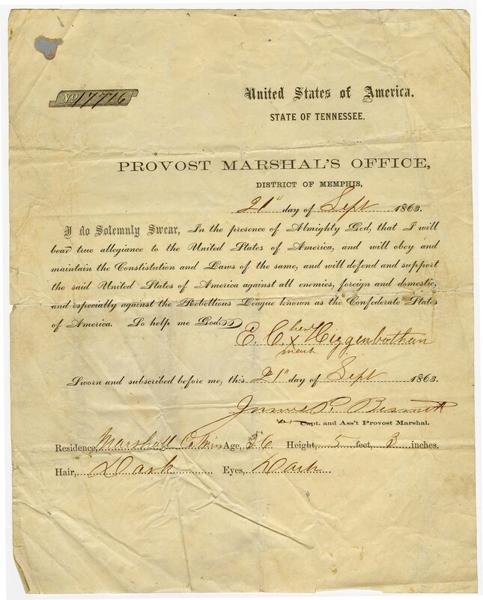 No. 17776
United States of America.
STATE OF TENNESSEE.
PROVOST MARSHAL'S OFFICE,
DISTRICT OF MEMPHIS,
21st day of Sept 1863.
I do Solemnly Swear, In the presence of Almighty God, that I will
bear true allegiance to the United States of America, and will obey and
maintain the Constistution and Laws of the same, and will defend and support
the said United States of America against all enemies, foreign and domestic,
and especially against the Rebellious League known as the Confederate States
of America. So help me God.
E. C. her x mark Higgenbotham
Sworn and subscribed before me, this 21st day of Sept 1863.
James R.
Capt. and Ass't Provost Marshal.
Residence, Marshall Co Miss Age, 36 Height, 5 feet, 3 inches.
Hair, Dark Eyes, Dark